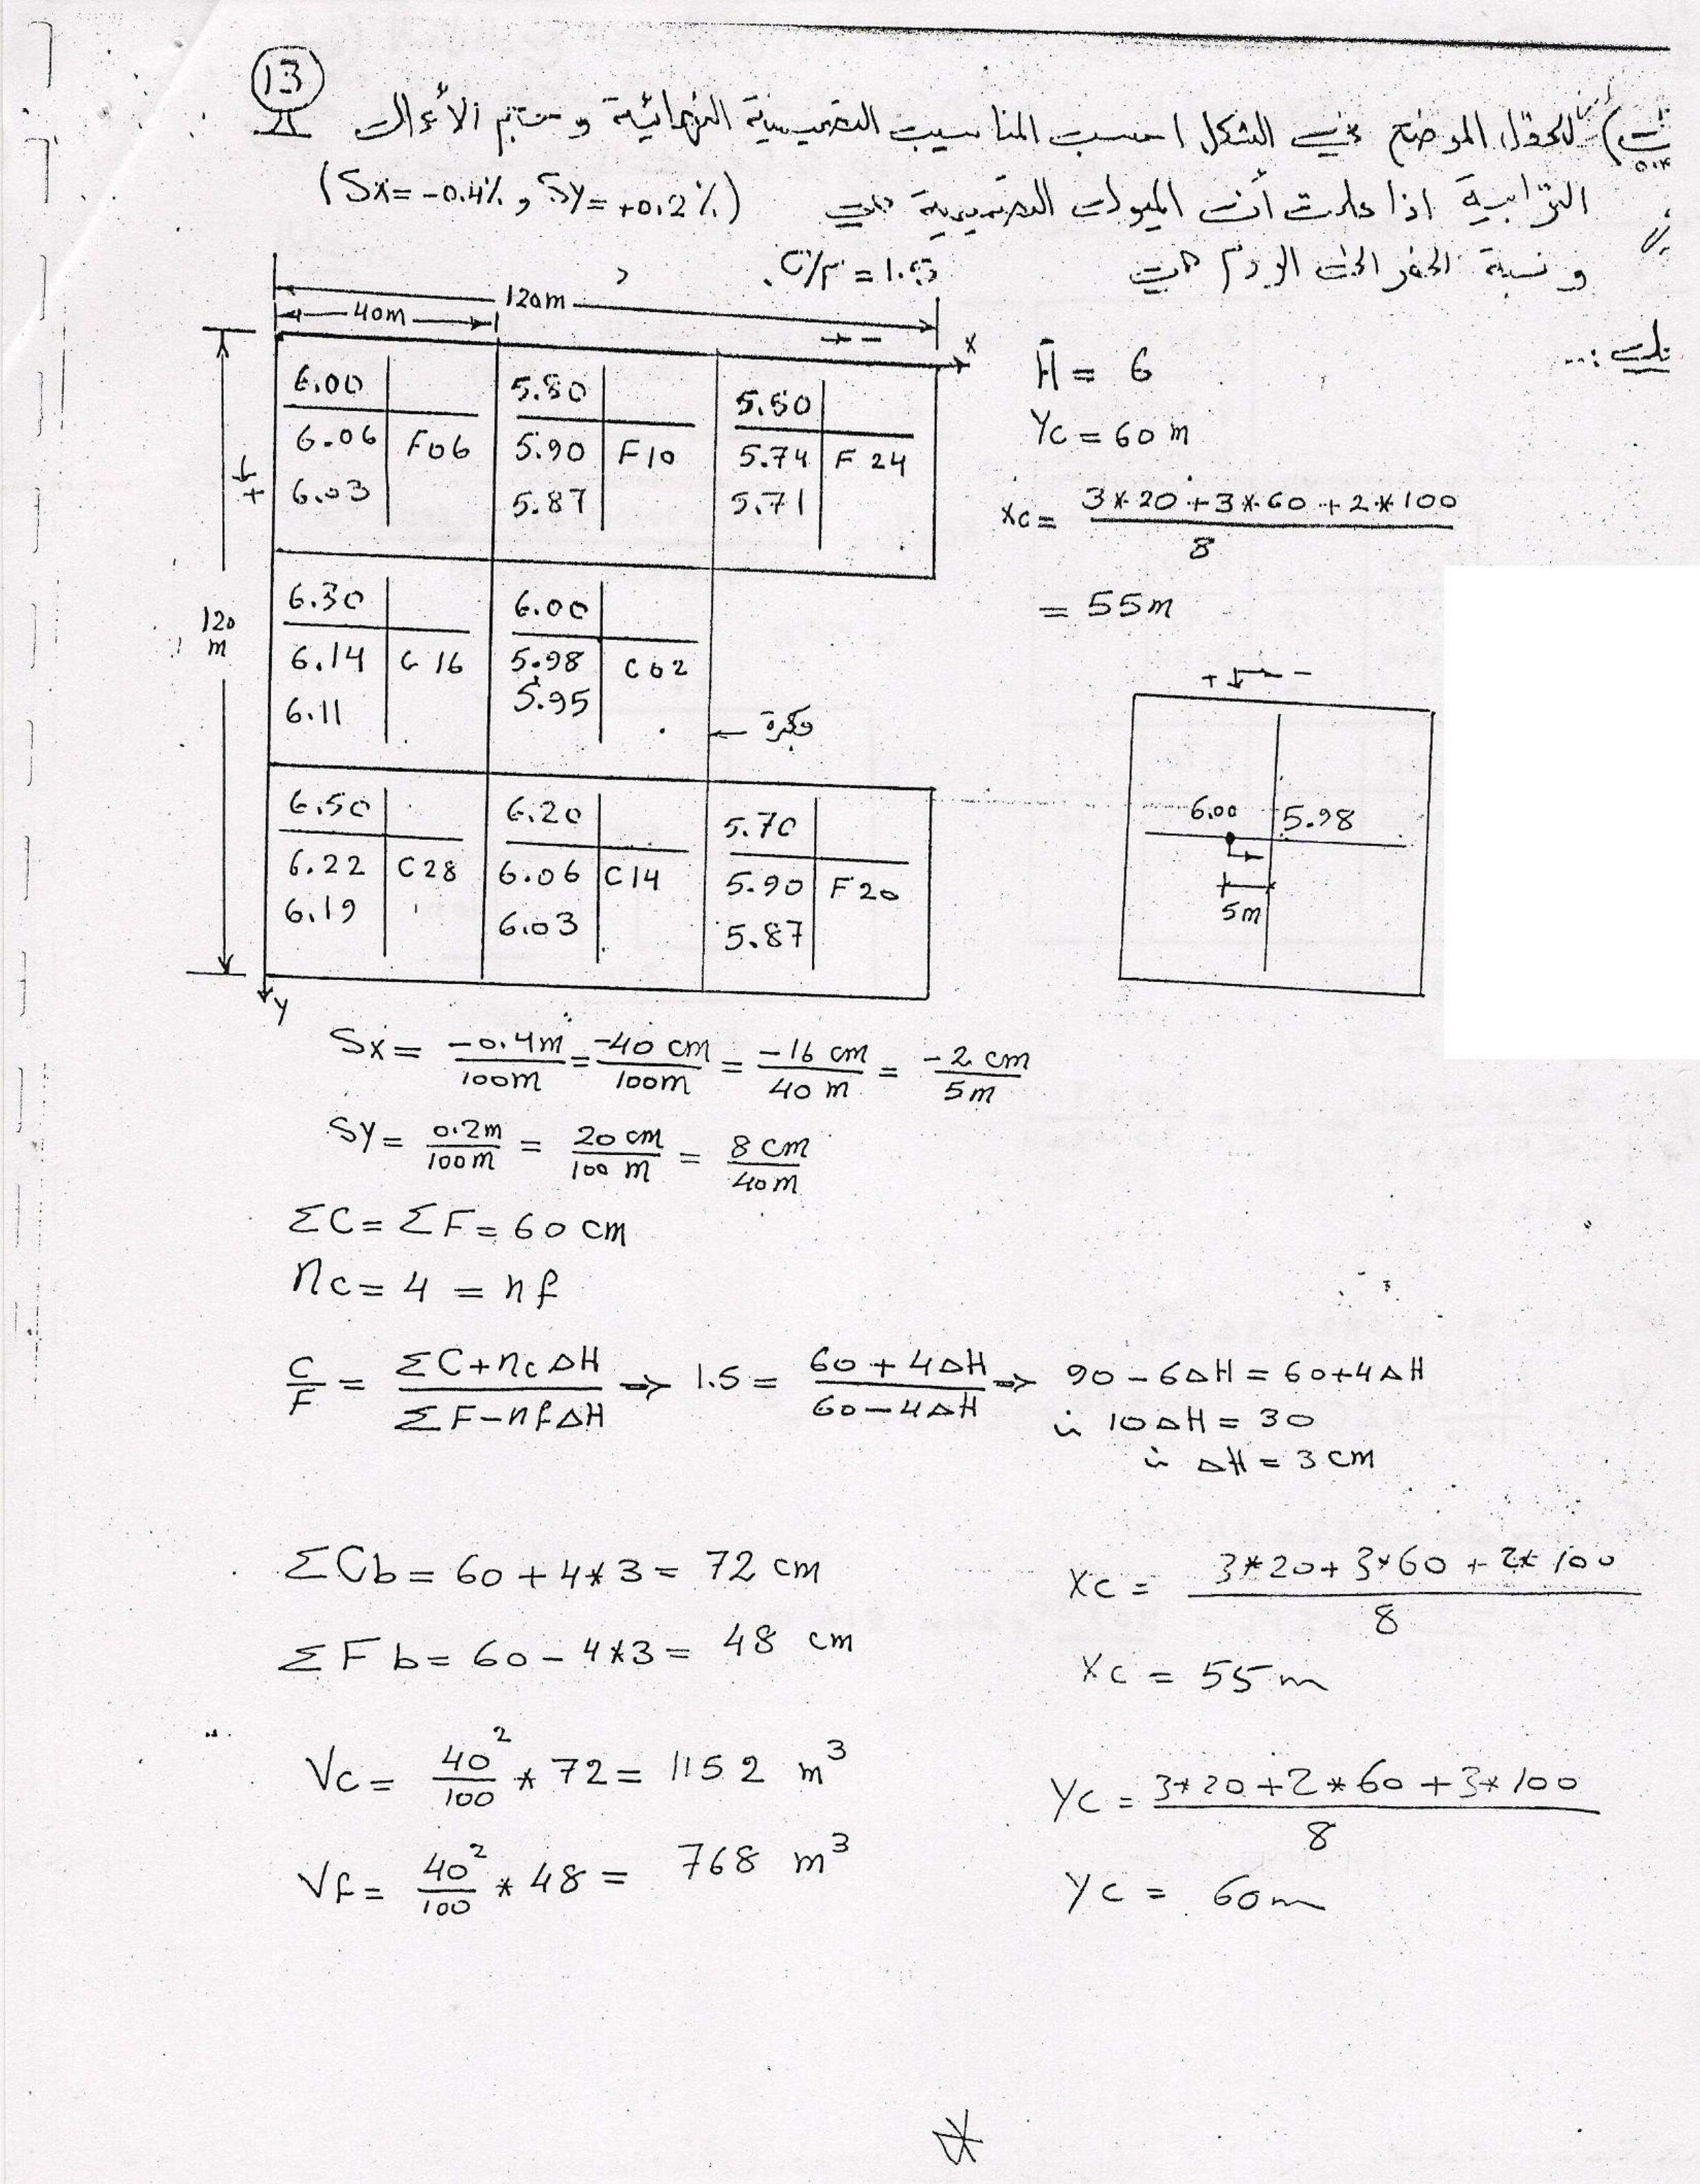 13
للحقل الموضح في الشكل احسب المناسيب التصميمية النهائية وحجم الأعمال
الترابية اذا علمت أن الميول التصميمية هي (Sx= -0.4% , Sy= +0.2%)
ونسبة الحفر الى الردم هي C/F = 1.5.
120m
40m
→ -
X
↓ +
120
m
Y
6.00
6.06 F06
6.03
5.80
5.90 F10
5.87
5.50
5.74 F 24
5.71
6.30
6.14 C 16
6.11
6.00
5.98 C02
5.95
6.50
6.22 C28
6.19
6.20
6.06 C14
6.03
5.70
5.90 F20
5.87
H̄ = 6
Yc = 60 m
Xc = (3*20+3*60+2*100)/8
= 55m
+ ↓ → -
6.00 5.98
5m
Sx = -0.4m/100m = -40 cm/100m = -16 cm/40 m = -2 cm/5m
Sy = 0.2m/100m = 20 cm/100 m = 8 cm/40m
ΣC = ΣF = 60 cm
nc = 4 = nf
C/F = (ΣC+nc ΔH)/(ΣF-nf ΔH) → 1.5 = (60+4ΔH)/(60-4ΔH) → 90-6ΔH = 60+4ΔH
∴ 10ΔH = 30
∴ ΔH = 3 cm
ΣCb = 60+4*3 = 72 cm
ΣFb = 60-4*3 = 48 cm
Vc = 40²/100 * 72 = 1152 m³
Vf = 40²/100 * 48 = 768 m³
Xc = (3*20+3*60+2*100)/8
Xc = 55m
Yc = (3*20+2*60+3*100)/8
Yc = 60m